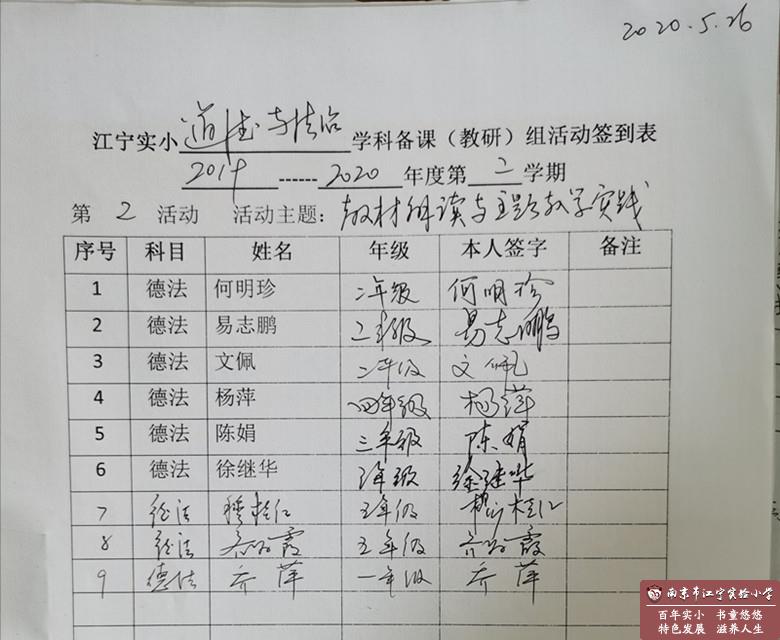 2020.5.26
江宁实小道德与法治学科备课（教研）组活动签到表
2019------2020年度第二学期
第2活动 活动主题：教材解读与主题教学实践
序号 科目 姓名 年级 本人签字 备注
1 德法 何明珍 二年级 何明珍
2 德法 易志鹏 二年级 易志鹏
3 德法 文佩 二年级 文佩
4 德法 杨萍 四年级 杨萍
5 德法 陈娟 三年级 陈娟
6 德法 徐继华 年级 徐继华
7 德法 桂仁 五年级 桂仁
8 德法 霞 五年级 霞
9 德法 乔萍 一年级 乔萍
南京市江宁实验小学
百年实小 书童悠悠
特色发展 滋养人生